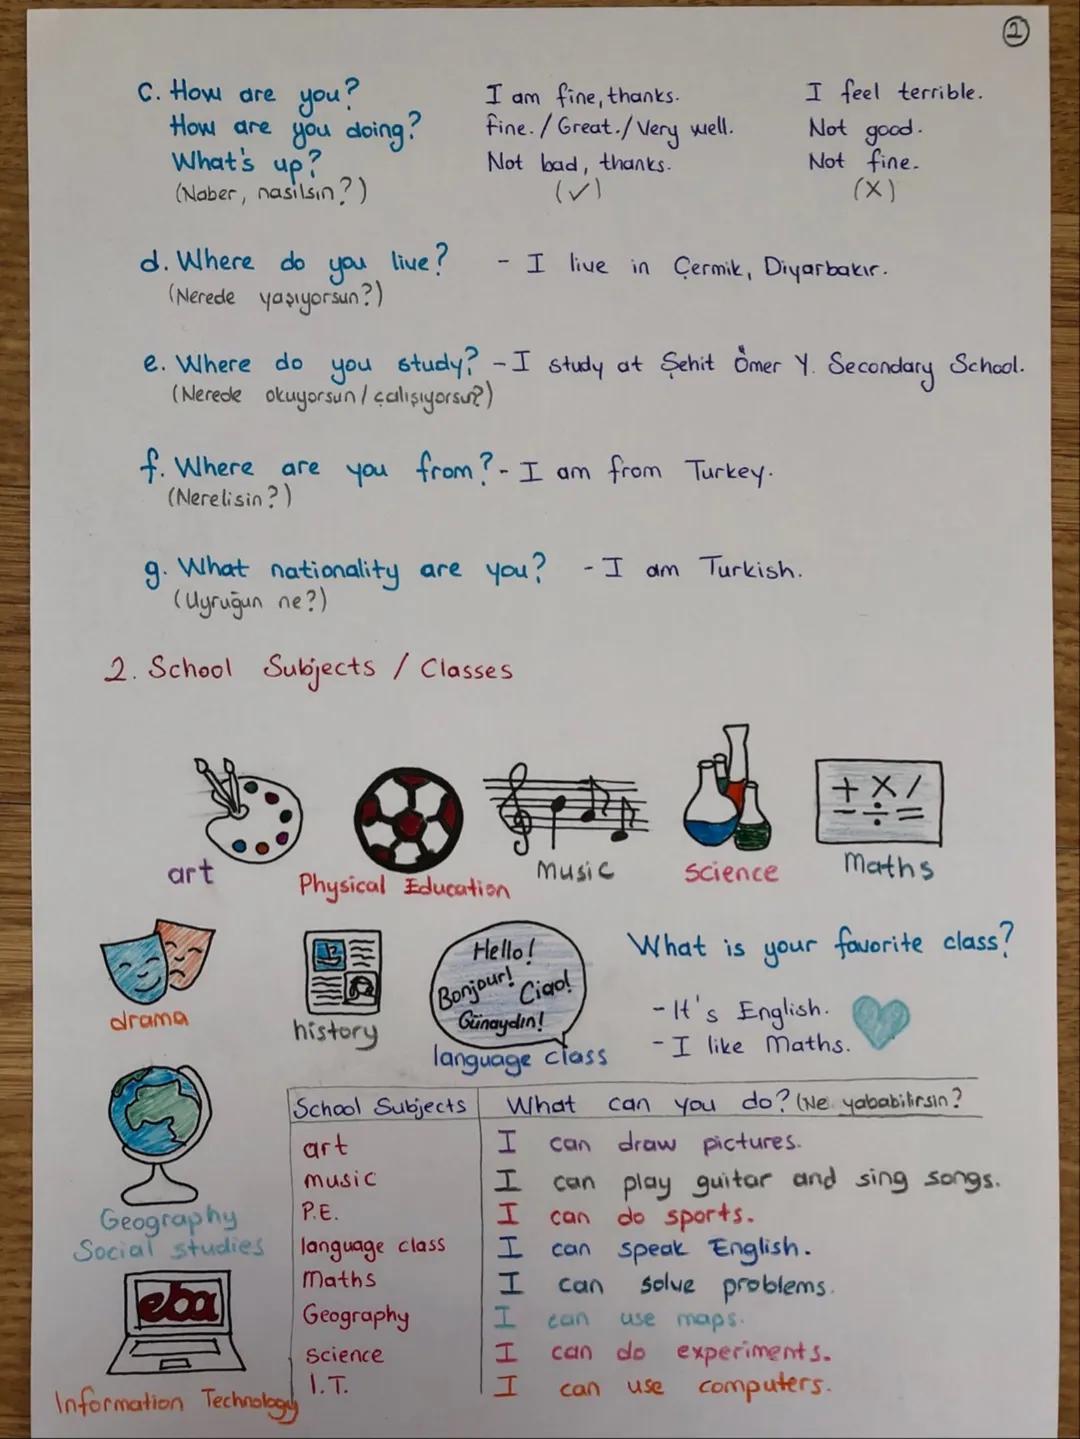 1
c. How are you? I am fine, thanks. I feel terrible.
How are you doing? Fine. / Great. / Very well. Not good.
What's up? Not bad, thanks. Not fine.
(Naber, nasılsın?) (✓) (X)
d. Where do you live? - I live in Çermik, Diyarbakır.
(Nerede yaşıyorsun?)
e. Where do you study? - I study at Şehit Ömer Y. Secondary School.
(Nerede okuyorsun / çalışıyorsun?)
f. Where are you from? - I am from Turkey.
(Nerelisin?)
g. What nationality are you? - I am Turkish.
(Uyruğun ne?)
2. School Subjects / Classes
+ X /
- ÷ =
art Physical Education Music Science Maths
Hello!
Bonjour! Ciao!
Günaydın!
drama history language class
What is your favorite class?
- It's English.
- I like Maths.
Geography
Social studies
eba
Information Technology
School Subjects What can you do? (Ne yababilirsin?
art I can draw pictures.
music I can play guitar and sing songs.
P.E. I can do sports.
language class I can speak English.
Maths I can solve problems.
Geography I can use maps.
science I can do experiments.
I.T. I can use computers.